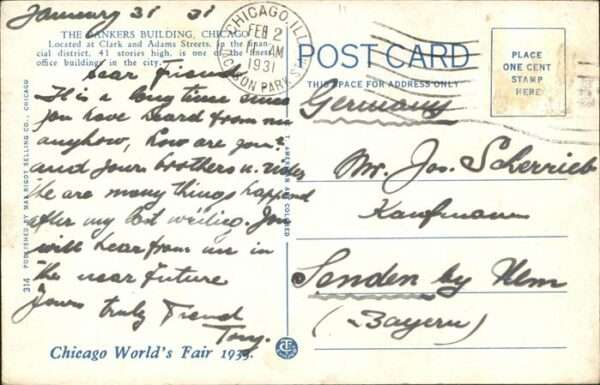 January 31 31
THE BANKERS BUILDING, CHICAGO
Located at Clark and Adams Streets, in the finan-
cial district. 41 stories high, is one of the finest
office buildings in the city.
Dear Friend
It is a long time since
you have heard from me
anyhow, how are you?
and your brothers u.
The are many things happend
after my last writing. You
will hear from me in
the near future
Yours truly Friend
Tony.
Chicago World's Fair 1933.
314 PUBLISHED BY MAX RIGOT SELLING CO., CHICAGO
CHICAGO, ILL.
FEB 2
AM
1931
JACKSON PARK STA.
POST CARD
THIS SPACE FOR ADDRESS ONLY
PLACE
ONE CENT
STAMP
HERE
Germany
Mr. Jos. Scherrieb
Kaufmann
Senden by Ulm
(Bayern)